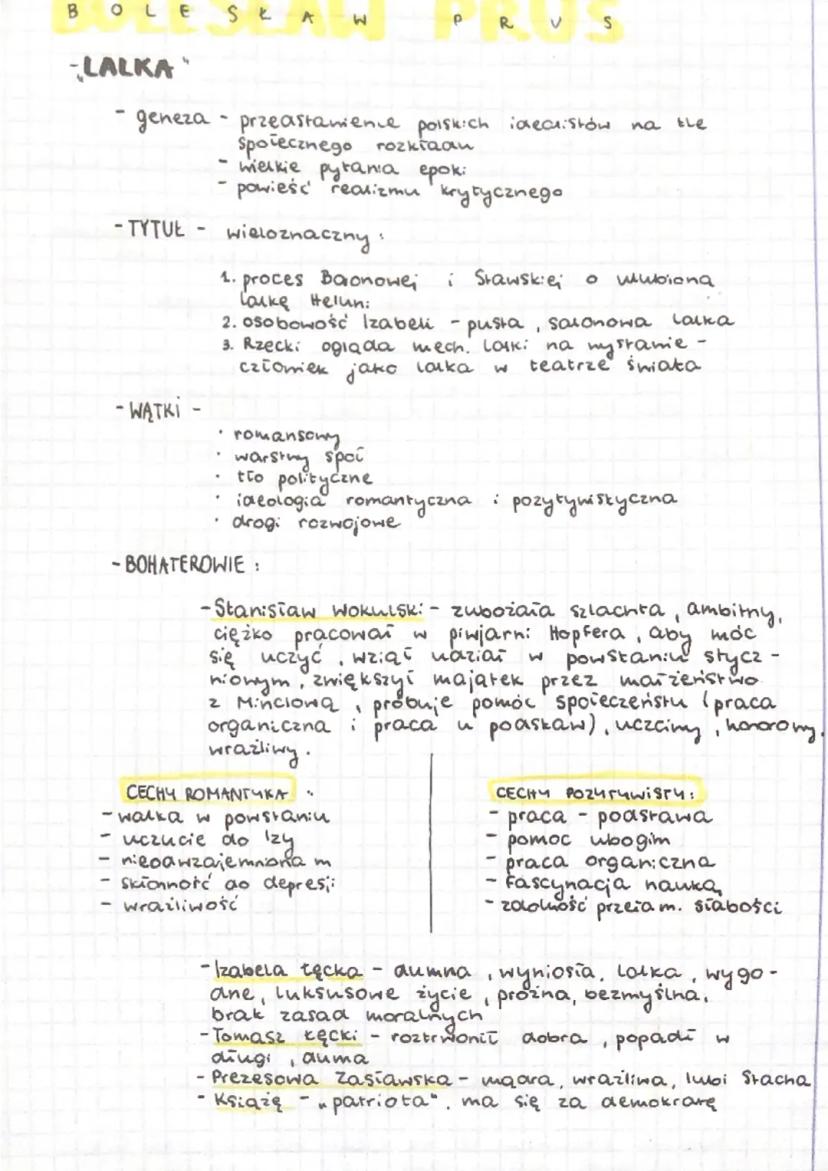 BOLESŁAW PRUS
- „LALKA"
- geneza - przedstawienie polskich idealistów na tle
społecznego rozkładu
- wielkie pytania epoki
- powieść realizmu krytycznego
- TYTUŁ - wieloznaczny:
1. proces Baronowej i Stawskiej o ulubioną
lalkę Heluni
2. osobowość Izabeli - pusta, salonowa lalka
3. Rzecki ogląda mech. lalki na wystawie -
człowiek jako lalka w teatrze świata
- WĄTKI -
· romansowy
· warstwy społ
· tło polityczne
· ideologia romantyczna i pozytywistyczna
· drogi rozwojowe
- BOHATEROWIE:
- Stanisław Wokulski - zubożała szlachta, ambitny,
ciężko pracował w piwiarni Hopfera, aby móc
się uczyć, wziął udział w powstaniu stycz-
niowym, zwiększył majątek przez małżeństwo
z Minclową, próbuje pomóc społeczeństu (praca
organiczna i praca u podstaw), uczciwy, honorowy,
wrażliwy.
CECHY ROMANTYKA:
- walka w powstaniu
- uczucie do Izy
- nieodwzajemniona m
- skłonność do depresji
- wrażliwość
CECHY POZYTYWISTY:
- praca - podstawa
- pomoc ubogim
- praca organiczna
- fascynacja nauką
- zdolność przełam. słabości
- Izabela Łęcka - dumna, wyniosła, lalka, wygo-
dne, luksusowe życie, próżna, bezmyślna,
brak zasad moralnych
- Tomasz Łęcki - roztrwonił dobra, popadł w
długi, duma
- Prezesowa Zasławska - mądra, wrażliwa, lubi Stacha
- Książę - „patriota", ma się za demokratę